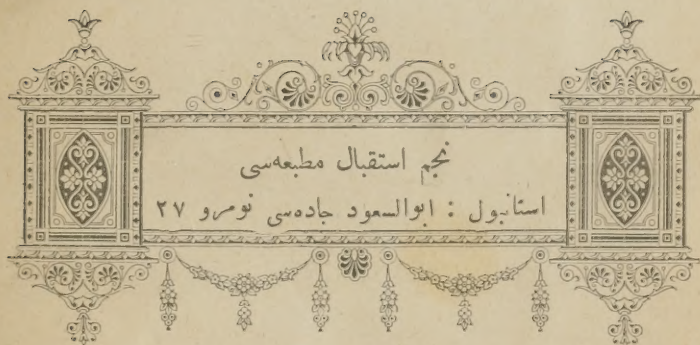 نجم استقبال مطبعه‌سی
استانبول : ابوالسعود جاده‌سی نومرو ٢٧